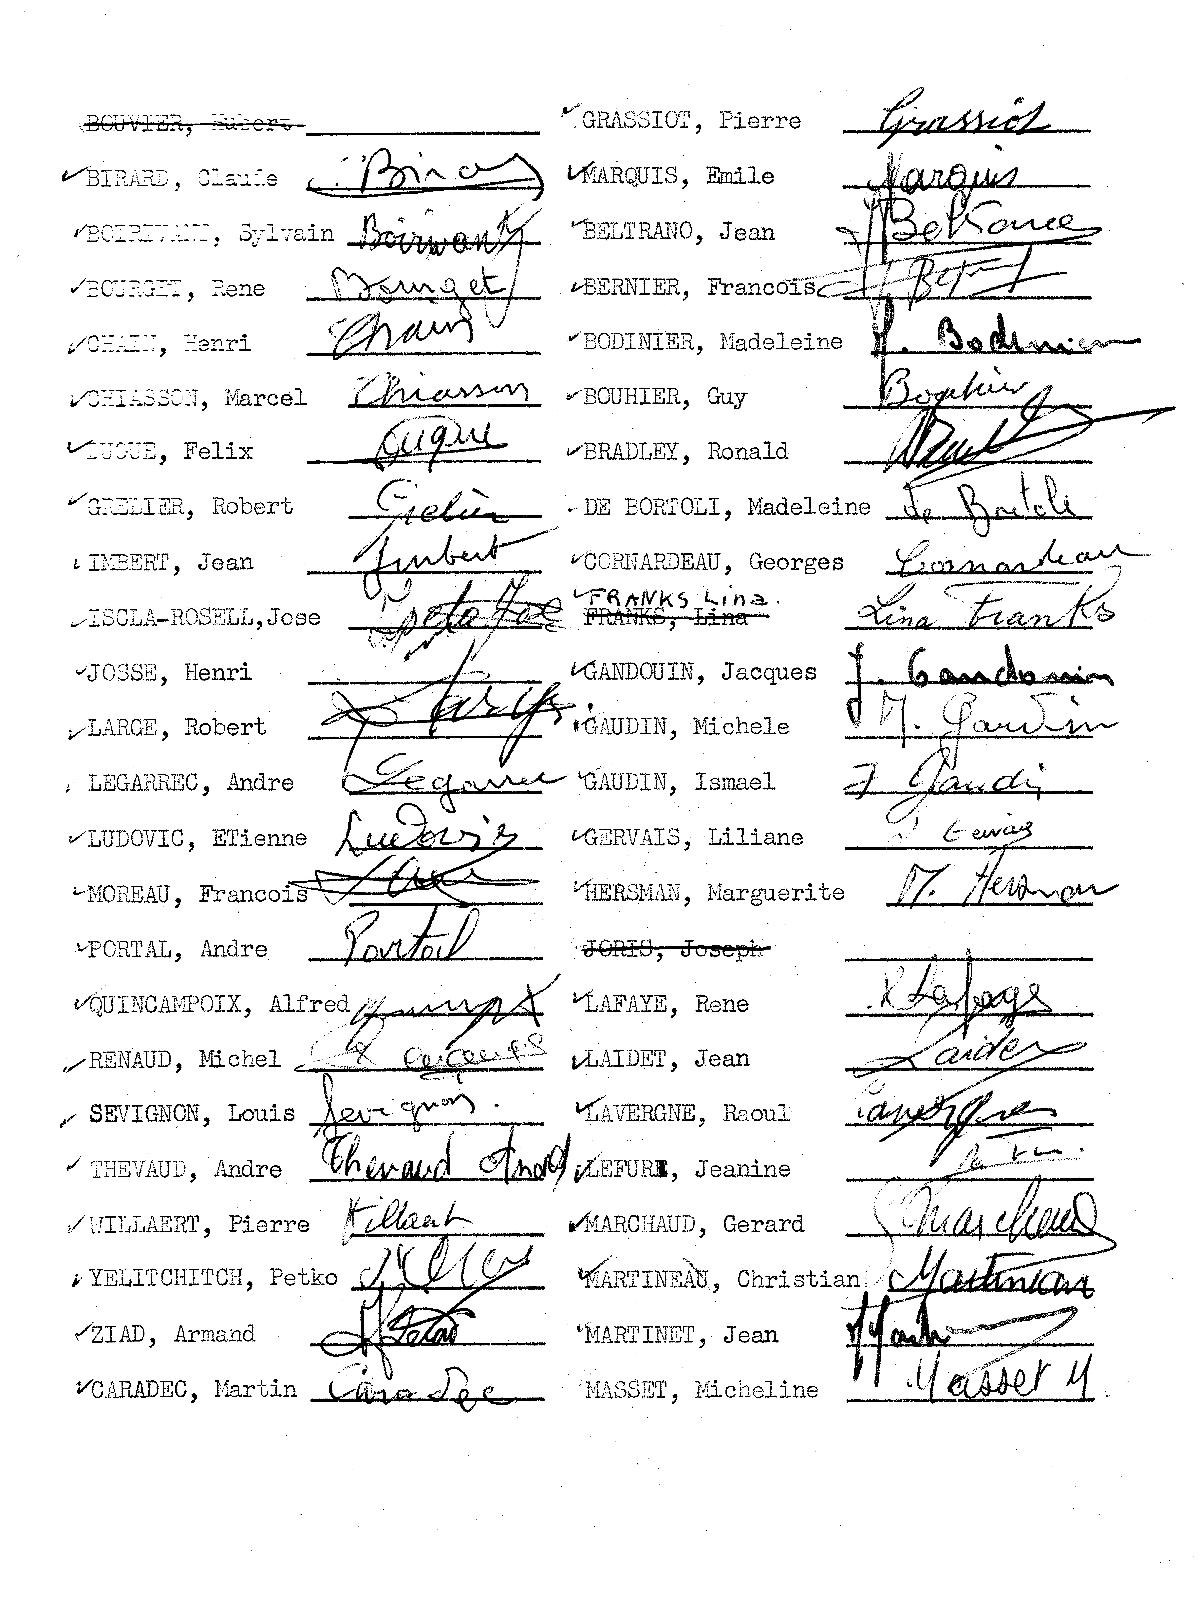 BOUVIER, Hubert
BIRARD, Claude
BOIRIVANT, Sylvain Boirivant
BOURGET, Rene Bourget
CHAIN, Henri Chain
CHIASSON, Marcel Chiasson
DUGUE, Felix Dugue
GRELIER, Robert Grelier
IMBERT, Jean Imbert
ISOLA-ROSELL,Jose
JOSSE, Henri
LARGE, Robert Large
LEGARREC, Andre Legarrec
LUDOVIC, ETienne Ludovic
MOREAU, Francois
PORTAL, Andre Portal
QUINCAMPOIX, Alfred
RENAUD, Michel
SEVIGNON, Louis Sevignon.
THEVAUD, Andre Thevaud André
WILLAERT, Pierre Willaert
YELITCHITCH, Petko
ZIAD, Armand
CARADEC, Martin Caradec
GRASSIOT, Pierre Grassiot
MARQUIS, Emile Marquis
BELTRANO, Jean
BERNIER, Francois
BODINIER, Madeleine M. Bodinier
BOUHIER, Guy Bouhier
BRADLEY, Ronald
DE BORTOLI, Madeleine de Bortoli
CORNARDEAU, Georges Cornardeau
FRANKS Lina.
FRANKS, Lina Lina Franks
GANDOUIN, Jacques J. Gandouin
GAUDIN, Michele M. Gaudin
GAUDIN, Ismael I Gaudin
GERVAIS, Liliane Gervais
HERSMAN, Marguerite M. Hersman
JORIS, Joseph
LAFAYE, Rene
LAIDET, Jean Laidet
LAVERGNE, Raoul Lavergne
LEFUR, Jeanine
MARCHAUD, Gerard Marchaud
MARTINEAU, Christian Martineau
MARTINET, Jean
MASSET, Micheline Masset M